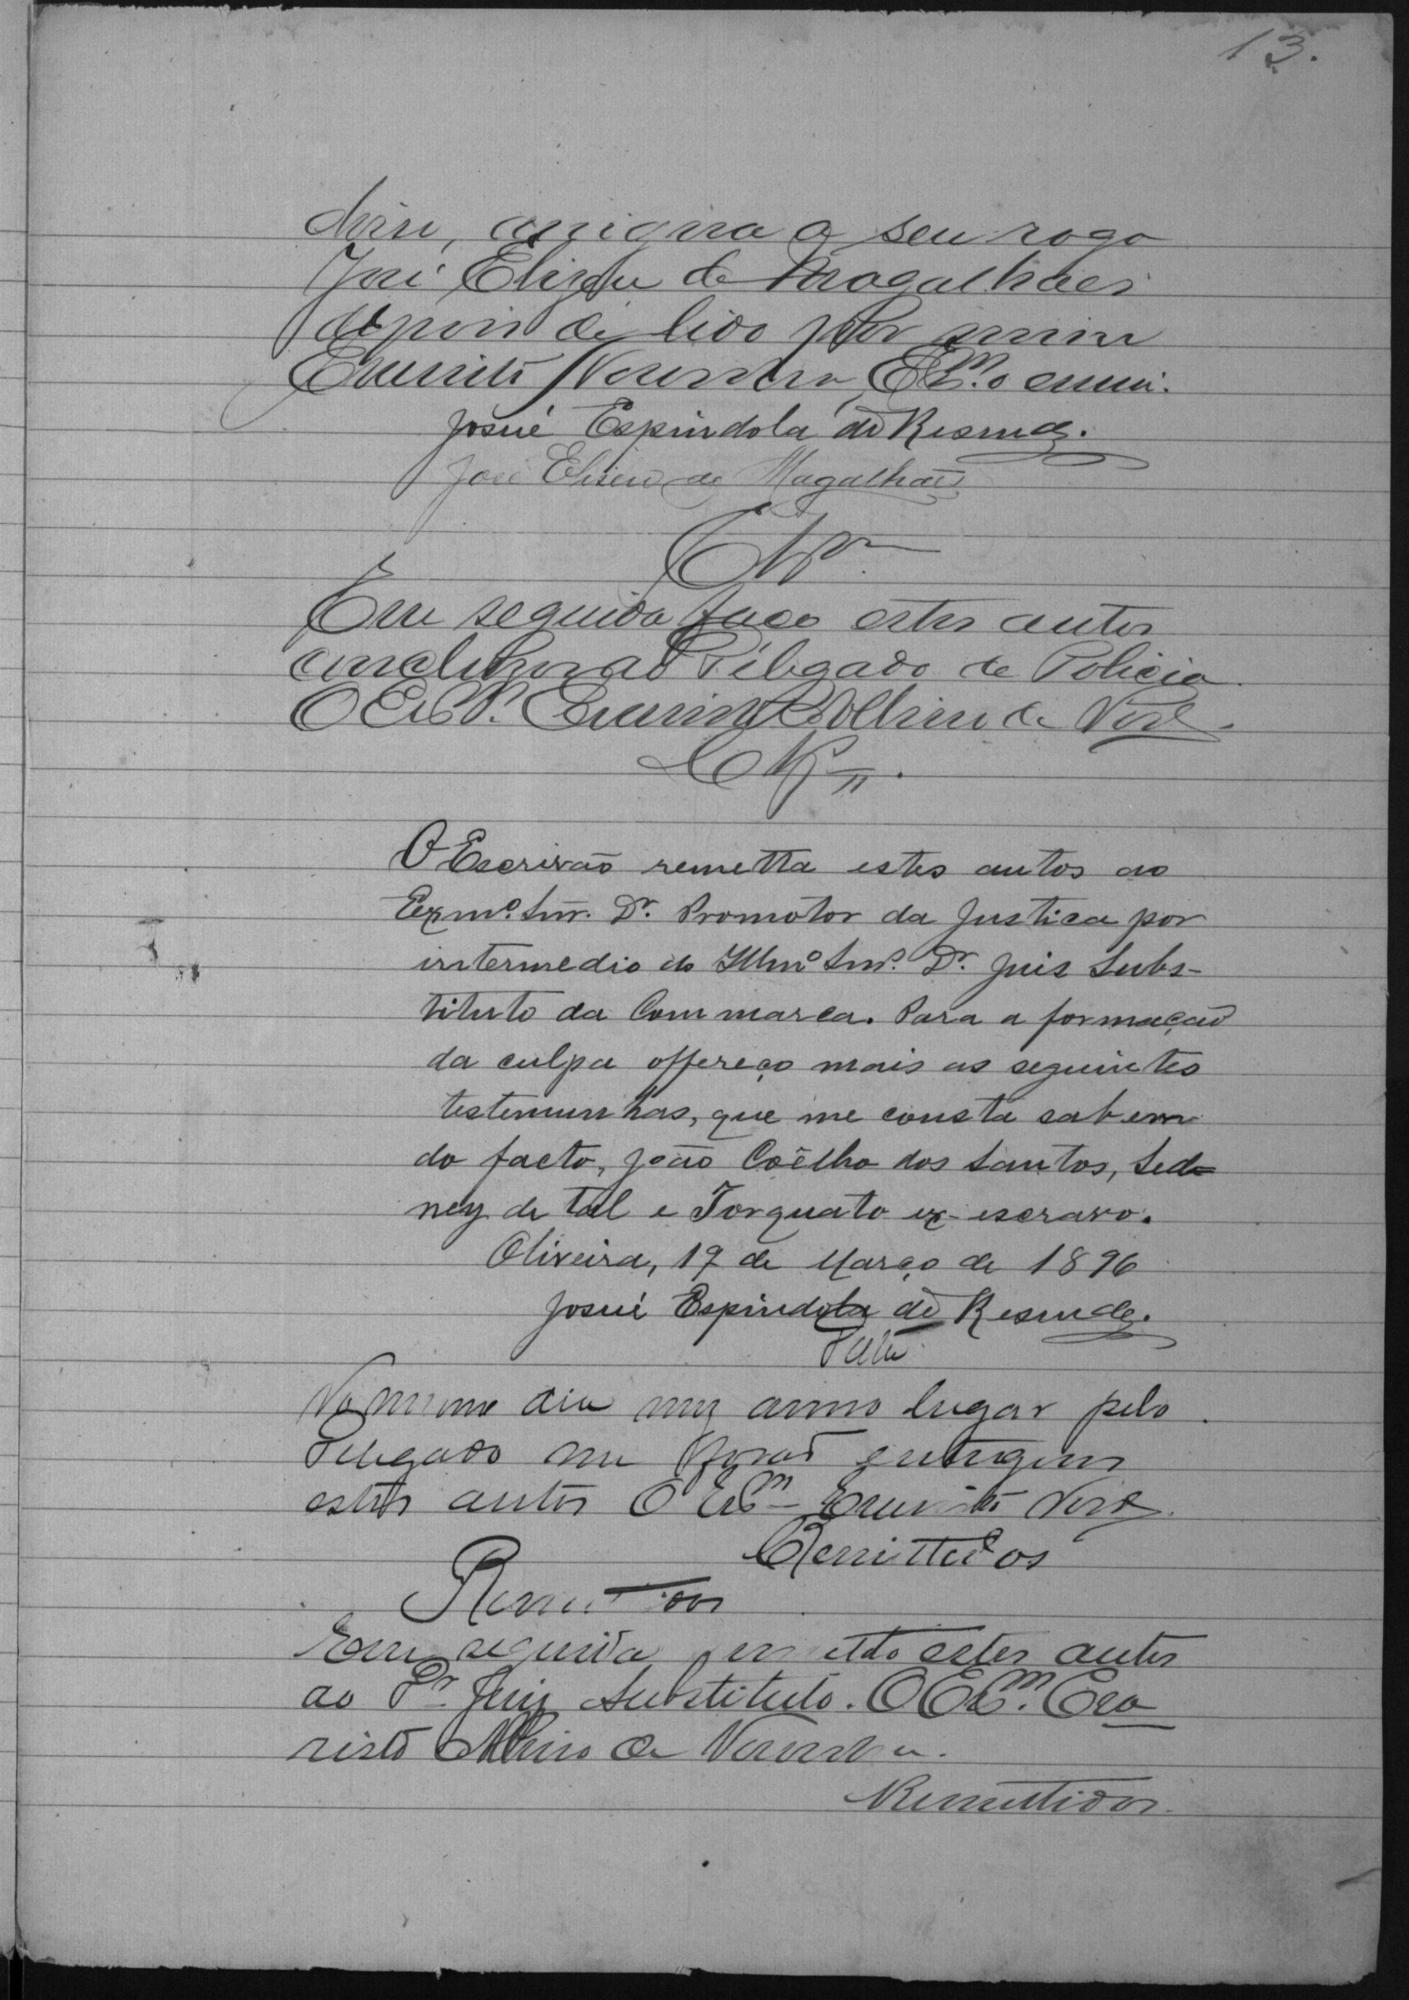 13.
disse, assigna a seu rogo
José Elizeu de Magalhães
depois de lido por mim
Evaristo Noronha, Escm. o escrevi.
Josué Espindola de Resende.
José Eliseu de Magalhães
Em seguida faço estes autos
conclusos ao Delegado de Policia
O Escm. Evaristo Albino de Norª.
O Escrivão remetta estes autos ao
Exmº. Snr. Dr. Promotor da Justica por
intermedio do Illmº Snr. Dr. Juis Subs-
tituto da Commarca. Para a formação
da culpa offereço mais as seguintes
testemunhas, que me consta sabem
do facto, João Coêlho dos Santos, Sed-
ney de tal e Torquato ex-escravo.
Oliveira, 19 de Março de 1896
Josué Espindola de Resende.
Data
No mesmo dia mez anno lugar pelo
Delegado me forão entregues
estes autos O Escm Evaristo Norª.
Remittidos
Remettidos
Em seguida remetto estes autos
ao Dr. Juiz Substituto. O Escm. Eva
risto Albino de Noronha.
Remettidos.